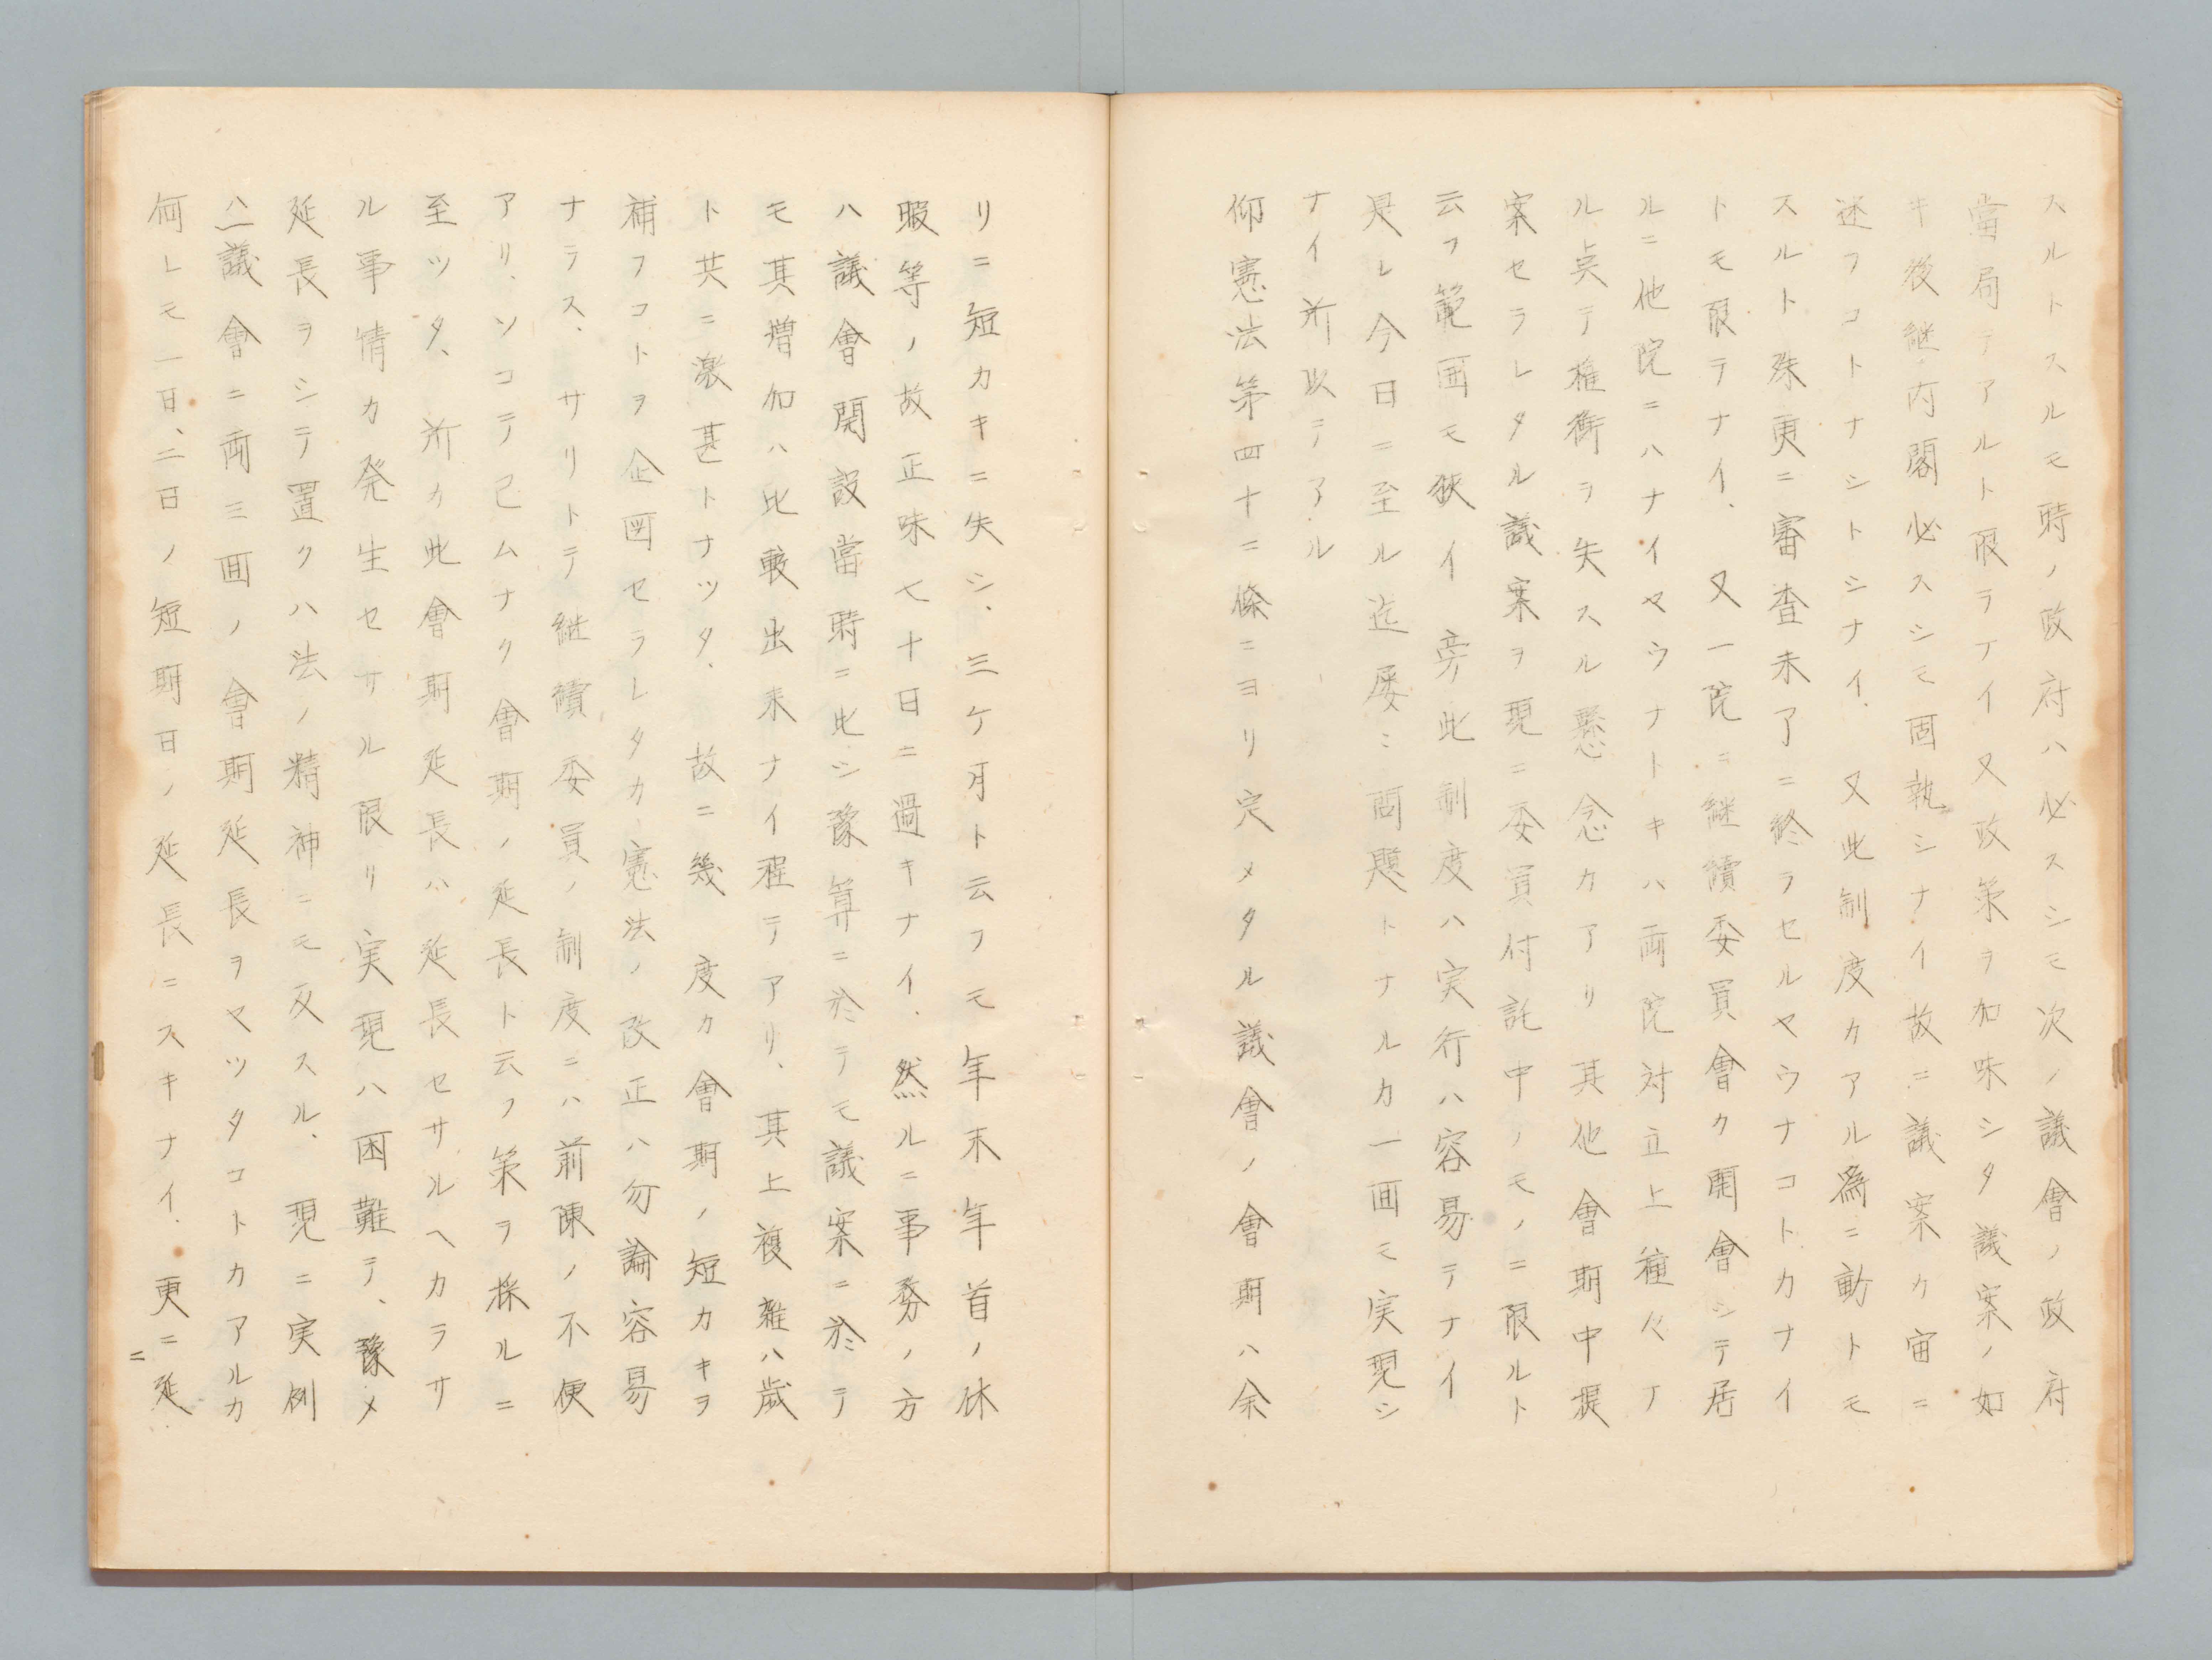 スルトスルモ時ノ政府ハ必スシモ次ノ議會ノ政府
當局テアルト限ラナイ又政策ヲ加味シタ議案ノ如
キ後継内閣必スシモ固執シナイ故ニ議案カ宙ニ
迷フコトナシトシナイ．又此制度カアル為ニ動トモ
スルト殊更ニ審査未了ニ終ラセルヤウナコトカナイ
トモ限テナイ．又一院ニ継續委員會カ開會シテ居
ルニ他院ニハナイヤウナトキハ両院対立上種々ナ
ル点テ権衡ヲ失スル懸念カアリ其他會期中提
案セラレタル議案ヲ現ニ委員付託中ノモノニ限ルト
云フ範囲モ狹イ旁此制度ハ実行ハ容易テナイ
是レ今日ニ至ル迄屡々問題トナルカ一回モ実現シ
ナイ所以テアル
仰憲法第四十二條ニヨリ定メタル議會ノ會期ハ余
リニ短カキニ失シ、三ケ月ト云フモ年末年首ノ休
暇等ノ故正味七十日ニ過キナイ．然ルニ事務ノ方
ハ議會開設當時ニ比シ豫算ニ於テモ議案ニ於テ
モ其増加ハ比較出来ナイ程テアリ、其上複雑ハ歳
ト共ニ激甚トナツタ．故ニ幾度カ會期ノ短カキヲ
補フコトヲ企図セラレタカ憲法ノ改正ハ勿論容易
ナラス、サリトテ継續委員ノ制度ニハ前陳ノ不便
アリ、ソコテ己ムナク會期ノ延長ト云フ策ヲ採ルニ
至ツタ、所カ此會期延長ハ延長セサルヘカラサ
ル事情カ発生セサル限リ実現ハ困難テ、豫メ
延長ヲシテ置クハ法ノ精神ニモ反スル、現ニ実例
ハ一議會ニ両三回ノ會期延長ヲヤツタコトカアルカ
何レモ一日、二日ノ短期日ノ延長ニスキナイ．更ニ延